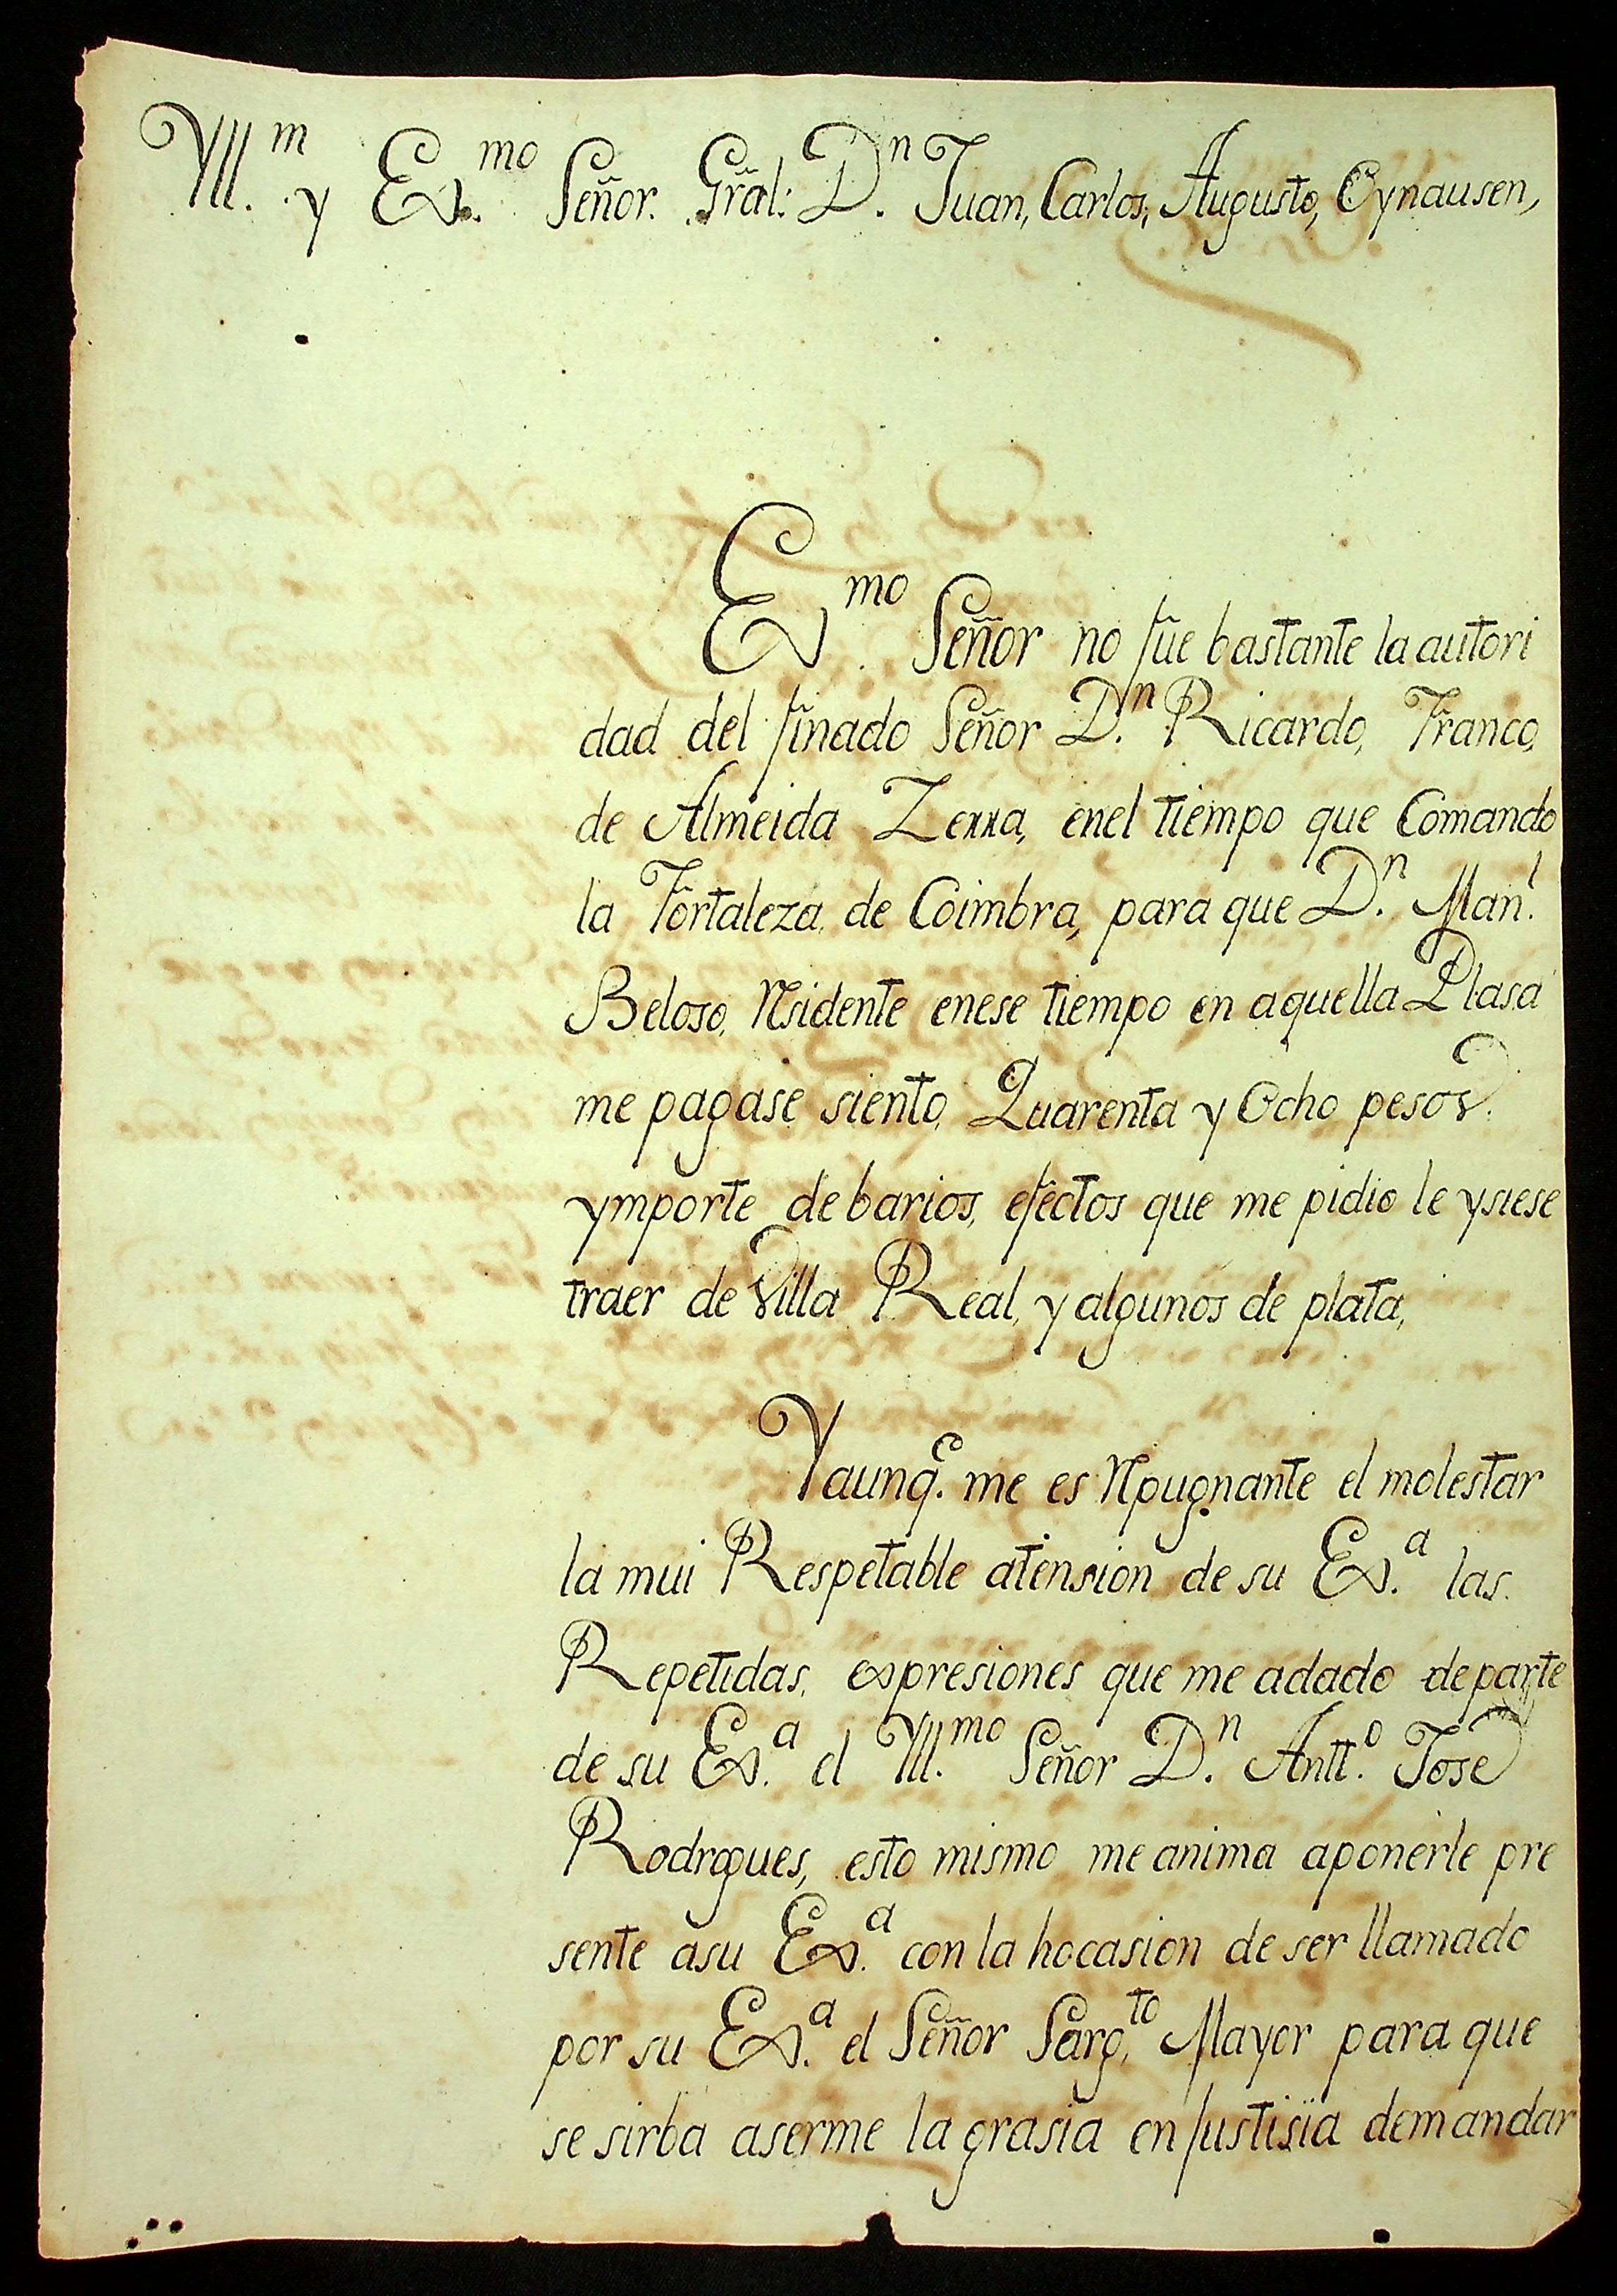 Yll.m y Ex.mo Señor. Gral: D.n Juan, Carlos, Augusto, Oynausen,
Ex.mo Señor no fue bastante la autori
dad del finado Señor D.n Ricardo, Franco,
de Almeida Zerra, enel tiempo que Comando
la Fortaleza, de Coimbra, para que D.n Man.l
Beloso, Rsidente enese tiempo en aquella Plasa
me pagase siento, Quarenta y Ocho pesos.
ymporte de barios, efectos que me pidio le ysiese
traer de Villa Real, y algunos de plata,
Yaunq.e me es Rpugnante el molestar
la mui Respetable atension de su Ex.a las.
Repetidas, expresiones que me adado departe
de su Ex.a el Yll.mo Señor D.n Antt.o Jose
Rodrgues, esto mismo me anima aponerle pre
sente asu Ex.a con la hocasion de ser llamado
por su Ex.a el Señor Sarg.to Mayor para que
se sirba aserme la grasia en Justisia demandar